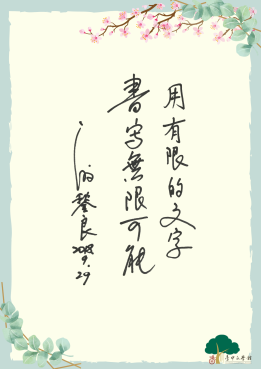 用有限的文字
書寫無限可能
2018
9.29